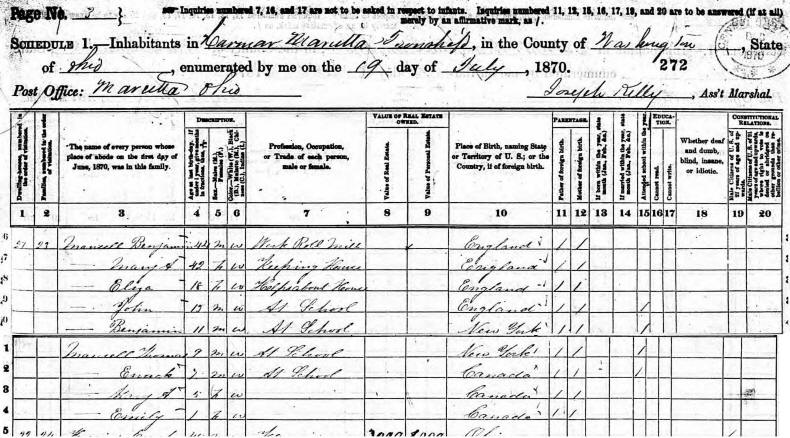 Page No. 3 } Inquiries numbered 7, 16, and 17 are not to be asked in respect to infants. Inquiries numbered 11, 12, 15, 16, 17, 19, and 20 are to be answered (if at all)
merely by an affirmative mark, as /.
SCHEDULE 1.—Inhabitants in Harmar Marietta Township, in the County of Washington, State
of Ohio, enumerated by me on the 19 day of July, 1870. 272
Post Office: Marietta Ohio Joseph Kelly, Ass't Marshal.
DESCRIPTION. VALUE OF REAL ESTATE OWNED. PARENTAGE. EDUCATION. CONSTITUTIONAL RELATIONS.
Dwelling-houses, numbered in the order of visitation.
Families, numbered in the order of visitation.
The name of every person whose place of abode on the first day of June, 1870, was in this family.
Age at last birth-day.
Sex.—Males (M.), Females (F.)
Profession, Occupation, or Trade of each person, male or female.
Value of Real Estate.
Value of Personal Estate.
Place of Birth, naming State or Territory of U. S.; or the Country, if of foreign birth.
Father of foreign birth.
Mother of foreign birth.
If born within the year, state month (Jan. Feb. &c.)
If married within the year, state month (Jan. Feb. &c.)
Attended school within the year.
Cannot read.
Cannot write.
Whether deaf and dumb, blind, insane, or idiotic.
1 2 3 4 5 6 7 8 9 10 11 12 13 14 15 16 17 18 19 20
6 23 Mansell Benjamin 44 m w Work Roll Mill England / /
7 — Mary A 42 f w Keeping House England / /
8 — Eliza 18 f w Help about House England / /
9 — John 13 m w At School England / / /
— Benjamin 11 m w At School New York / / /
1 Mansell Thomas 9 m w At School New York / / /
2 — 7 m w At School Canada / / /
3 — 5 f w Canada / /
4 — Emily 1 f w Canada / /
5